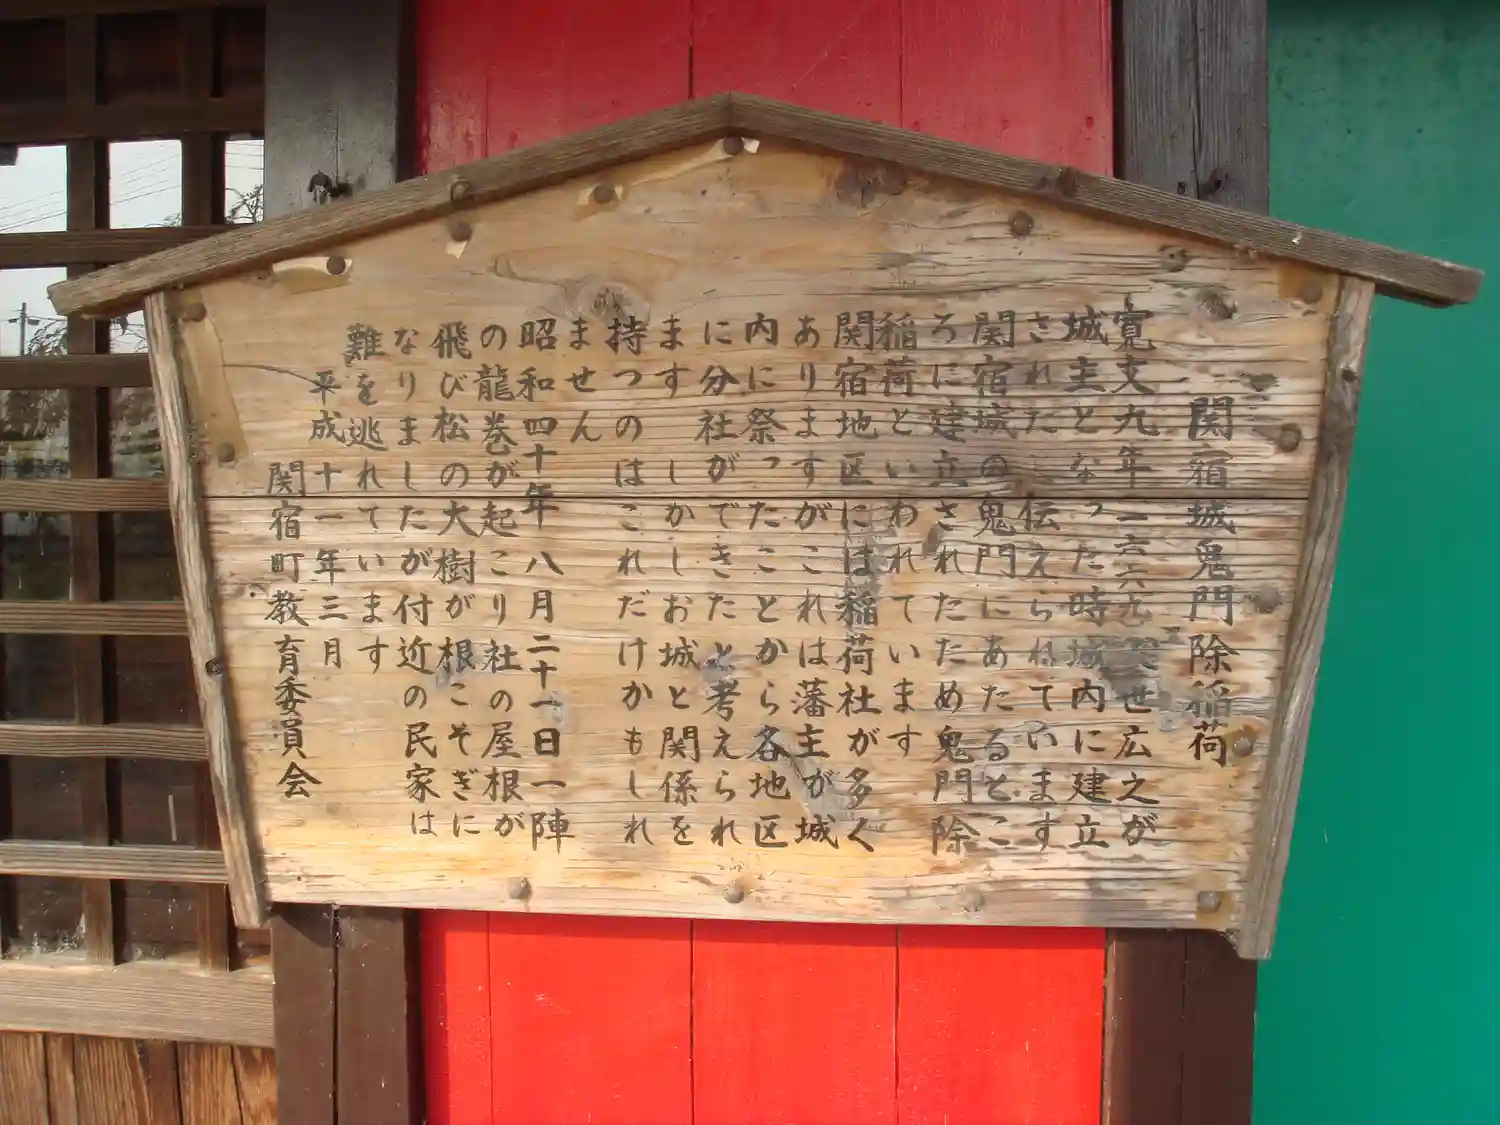 関宿城鬼門除稲荷
寛文九年一六六九 世広之が
城主となった時城内に建立
された 伝えられています
関宿城の鬼門にあたるとこ
ろに建立されたため鬼門除
稲荷といわれています
関宿地区には稲荷社が多く
ありますがこれは藩主が城
内に祭ったことから各地区
に分社ができたと考えられ
ます しかしお城と関係を
持つのはこれだけかもしれ
ません
昭和四十年八月二十一日一陣
の龍巻が起こり社の屋根が
飛び松の大樹が根こそぎに
なりましたが付近の民家は
難を逃れています
平成十一年三月
関宿町教育委員会